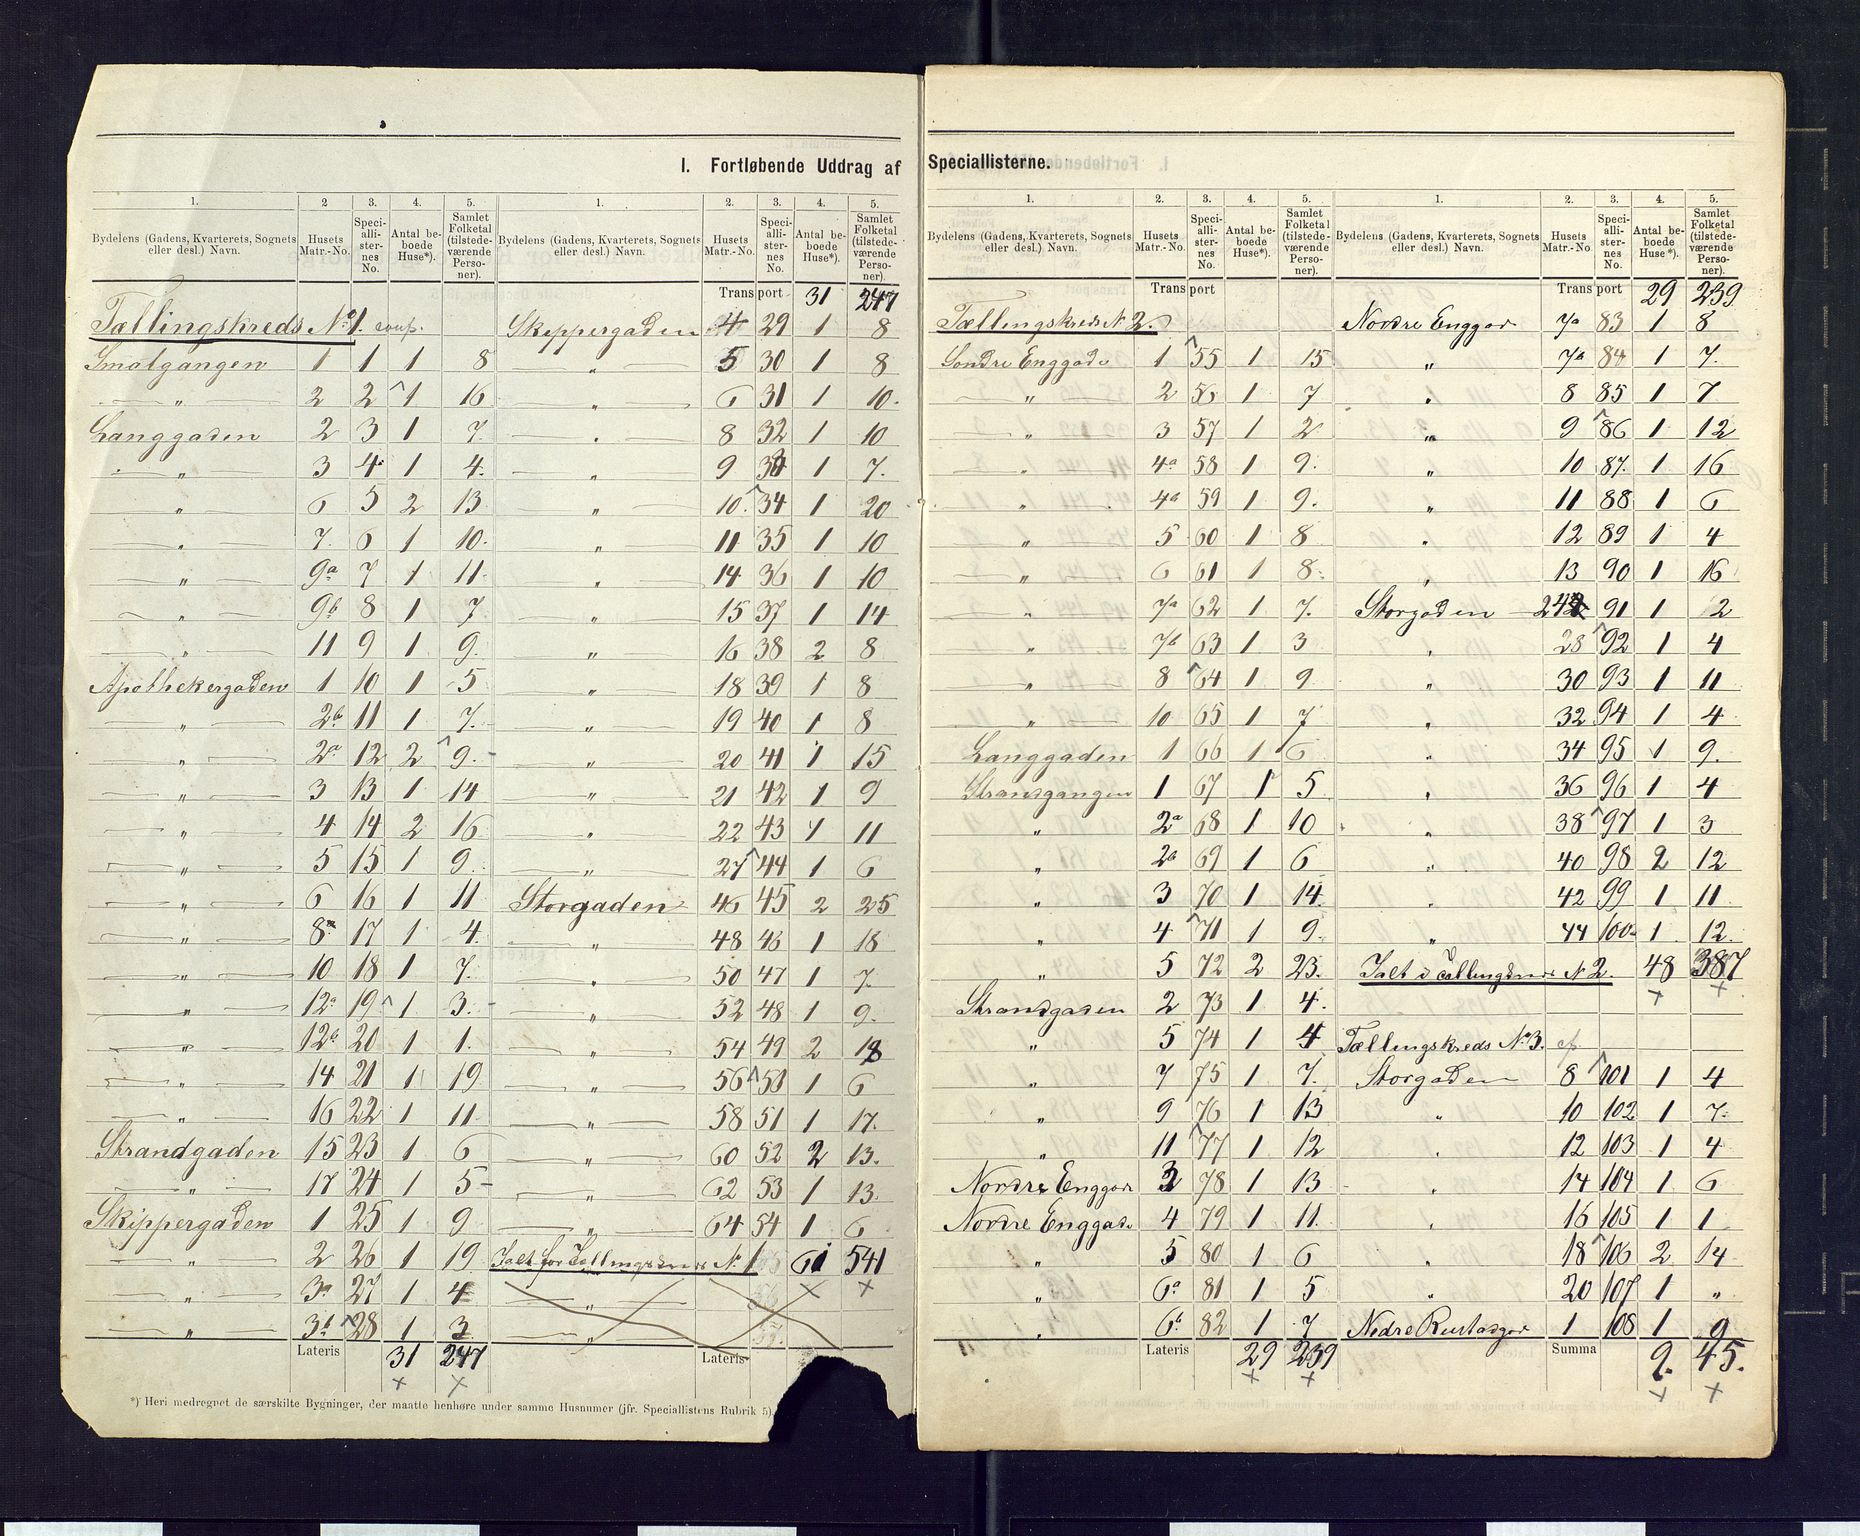 I. Fortløbende Uddrag af Speciallisterne.
1. 2 3. 4. 5. 1. 2. 3. 4. 5.
Bydelens (Gadens, Kvarterets, Sognets eller desl.) Navn. Husets Matr.-No. Speciallisternes No. Antal beboede Huse*). Samlet Folketal (tilstedeværende Personer). Bydelens (Gadens, Kvarterets, Sognets eller desl.) Navn. Husets Matr.-No. Speciallisternes No. Antal beboede Huse*). Samlet Folketal (tilstedeværende Personer).
Tællingskreds No 1.
Smalgangen 1 1 1 8
„ 2 2 1 16
Langgaden 2 3 1 7.
„ 3 4 1 4.
„ 6 5 2 13
„ 7. 6 1 10.
„ 9a 7 1 11.
„ 9b 8 1 7
„ 11 9 1 9.
Apothekergaden 1 10 1 5
„ 2b 11 1 7.
„ 2a 12 2 9.
„ 3 13 1 14
„ 4 14 2 16
„ 5 15 1 9.
„ 6 16 1 11
„ 8a 17 1 4.
„ 10 18 1 7.
„ 12a 19 1 3.
„ 12b 20 1 1.
„ 14 21 1 19
„ 16 22 1 11.
Strandgaden 15 23 1 6
„ 17 24 1 5
Skippergaden 1 25 1 9
„ 2 26 1 19
„ 3a 27 1 4
„ 3b 28 1 3
Lateris 31 247
Transport 31 247
Skippergaden 4 29 1 8
„ 5 30 1 8
„ 6 31 1 10.
„ 8 32 1 10
„ 9 33 1 7.
„ 10. 34 1 20
„ 11 35 1 10
„ 14 36 1 10
„ 15 37 1 14
„ 16 38 2 8
„ 18 39 1 8
„ 19 40 1 8
„ 20 41 1 15
„ 21 42 1 9
„ 22 43 1 11
„ 27 44 1 6
Storgaden 46 45 2 25
„ 48 46 1 18
„ 50 47 1 7.
„ 52 48 1 9.
„ 54 49 2 18
„ 56 50 1 6
„ 58 51 1 17.
„ 60 52 2 13.
„ 62 53 1 13.
„ 64 54 1 6.
Ialt for Tællingskreds No 1 61 541
„
„
Lateris
*) Heri medregnet de særskilte Bygninger, der maatte henhøre under samme Husnumer (jfr. Speciallistens Rubrik 5).
1. 2. 3. 4. 5. 1. 2. 3. 4. 5.
Bydelens (Gadens, Kvarterets, Sognets eller desl.) Navn. Husets Matr.-No. Speciallisternes No. Antal beboede Huse*). Samlet Folketal (tilstedeværende Personer). Bydelens (Gadens, Kvarterets, Sognets eller desl.) Navn. Husets Matr.-No. Speciallisternes No. Antal beboede Huse*). Samlet Folketal (tilstedeværende Personer).
Transport
Tællingskreds N 2.
Søndre Enggade 1 55 1 15
„ 2 56 1 7
„ 3 57 1 2
„ 4a 58 1 9.
„ 4b 59 1 9.
„ 5 60 1 8
„ 6 61 1 8.
„ 7a 62 1 7.
„ 7b 63 1 3
„ 8 64 1 9
„ 10 65 1 7
Langgaden 1 66 1 6
Strandgangen 1 67 1 5
„ 2a 68 1 10
„ 2b 69 1 6
„ 3 70 1 14.
„ 4 71 1 9.
„ 5 72 2 23.
Strandgaden 2 73 1 4.
„ 5 74 1 4
„ 7 75 1 7.
„ 9 76 1 13
„ 11 77 1 12
Nordre Enggade 3 78 1 13
Nordre Enggade 4 79 1 11.
„ 5 80 1 6
„ 6a 81 1 5
„ 6b 82 1 7
Lateris 29 239
Transport 29 239
Nordre Enggad 7a 83 1 8
„ 7b 84 1 7.
„ 8 85 1 7
„ 9 86 1 12
„ 10 87. 1 16
„ 11 88 1 6
„ 12 89 1 4
„ 13 90 1 16
Storgaden 91 1 2
„ 28 92 1 4
„ 30 93 1 11
„ 32 94 1 4
„ 34 95 1 9.
„ 36 96 1 4
„ 38 97 1 3
„ 40 98 2 12
„ 42 99 1 11
„ 44 100 1 12.
Ialt i Tællingskreds N 2. 48 387
Tællingskreds No 3.
Storgaden 8 101 1 4
„ 10 102 1 7.
„ 12 103 1 4
„ 14 104 1 6
„ 16 105 1 1
„ 18 106 2 14
„ 20 107 1 „
Nedre Rustadgad 1 108 1 9
Summa 9. 45.